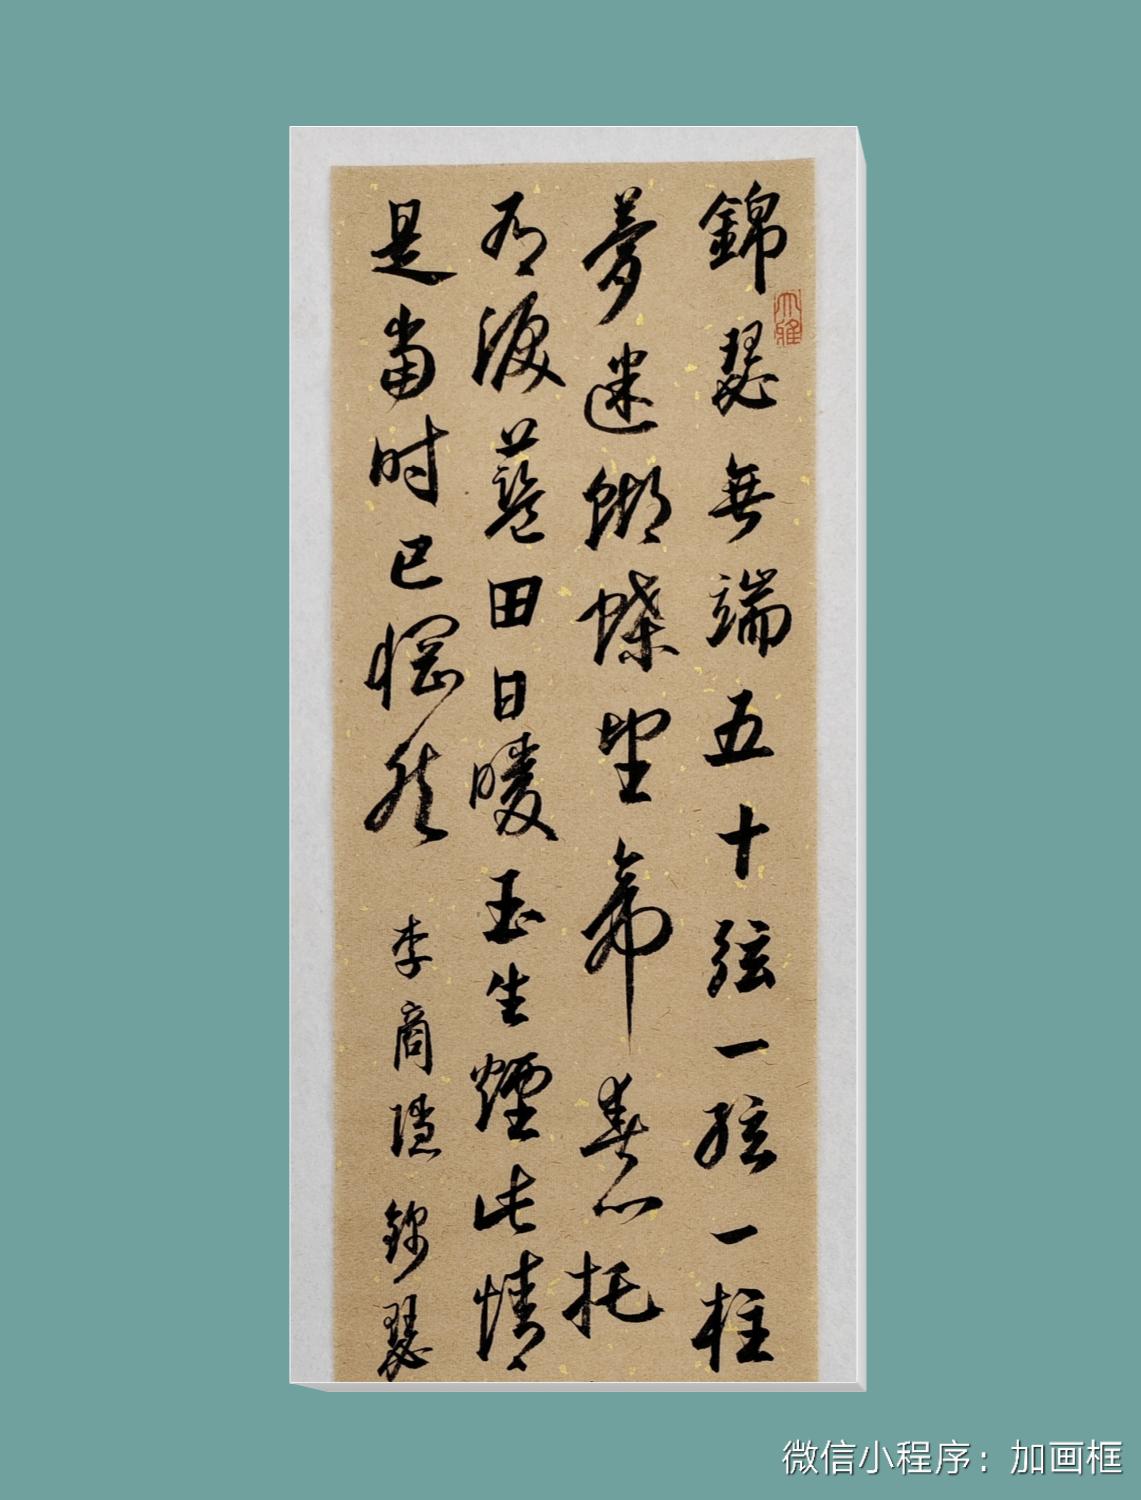 錦瑟無端五十弦一弦一柱
夢迷蝴蝶望帝春心托
有淚藍田日暖玉生煙此情
是當时已惘然
李商隱錦瑟
大雅
微信小程序：加画框